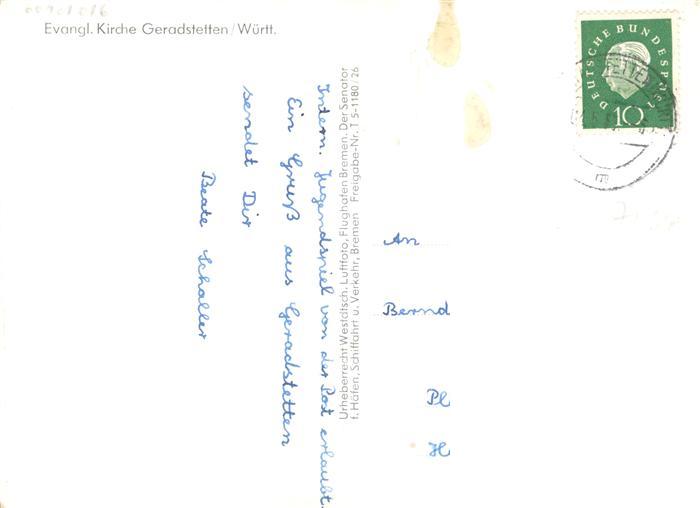 Evangl. Kirche Geradstetten/Württ.
Intern. Jugendspiel von der Post erlaubt.
Ein Gruß aus Geradstetten
sendet Dir
Beate Schaller
Urheberrecht Westdtsch. Luftfoto, Flughafen Bremen. Der Senator
f. Häfen, Schiffahrt u. Verkehr, Bremen Freigabe-Nr. T 5-1180/26
DEUTSCHE BUNDESPOST
10
An
Bernd
Pl
H